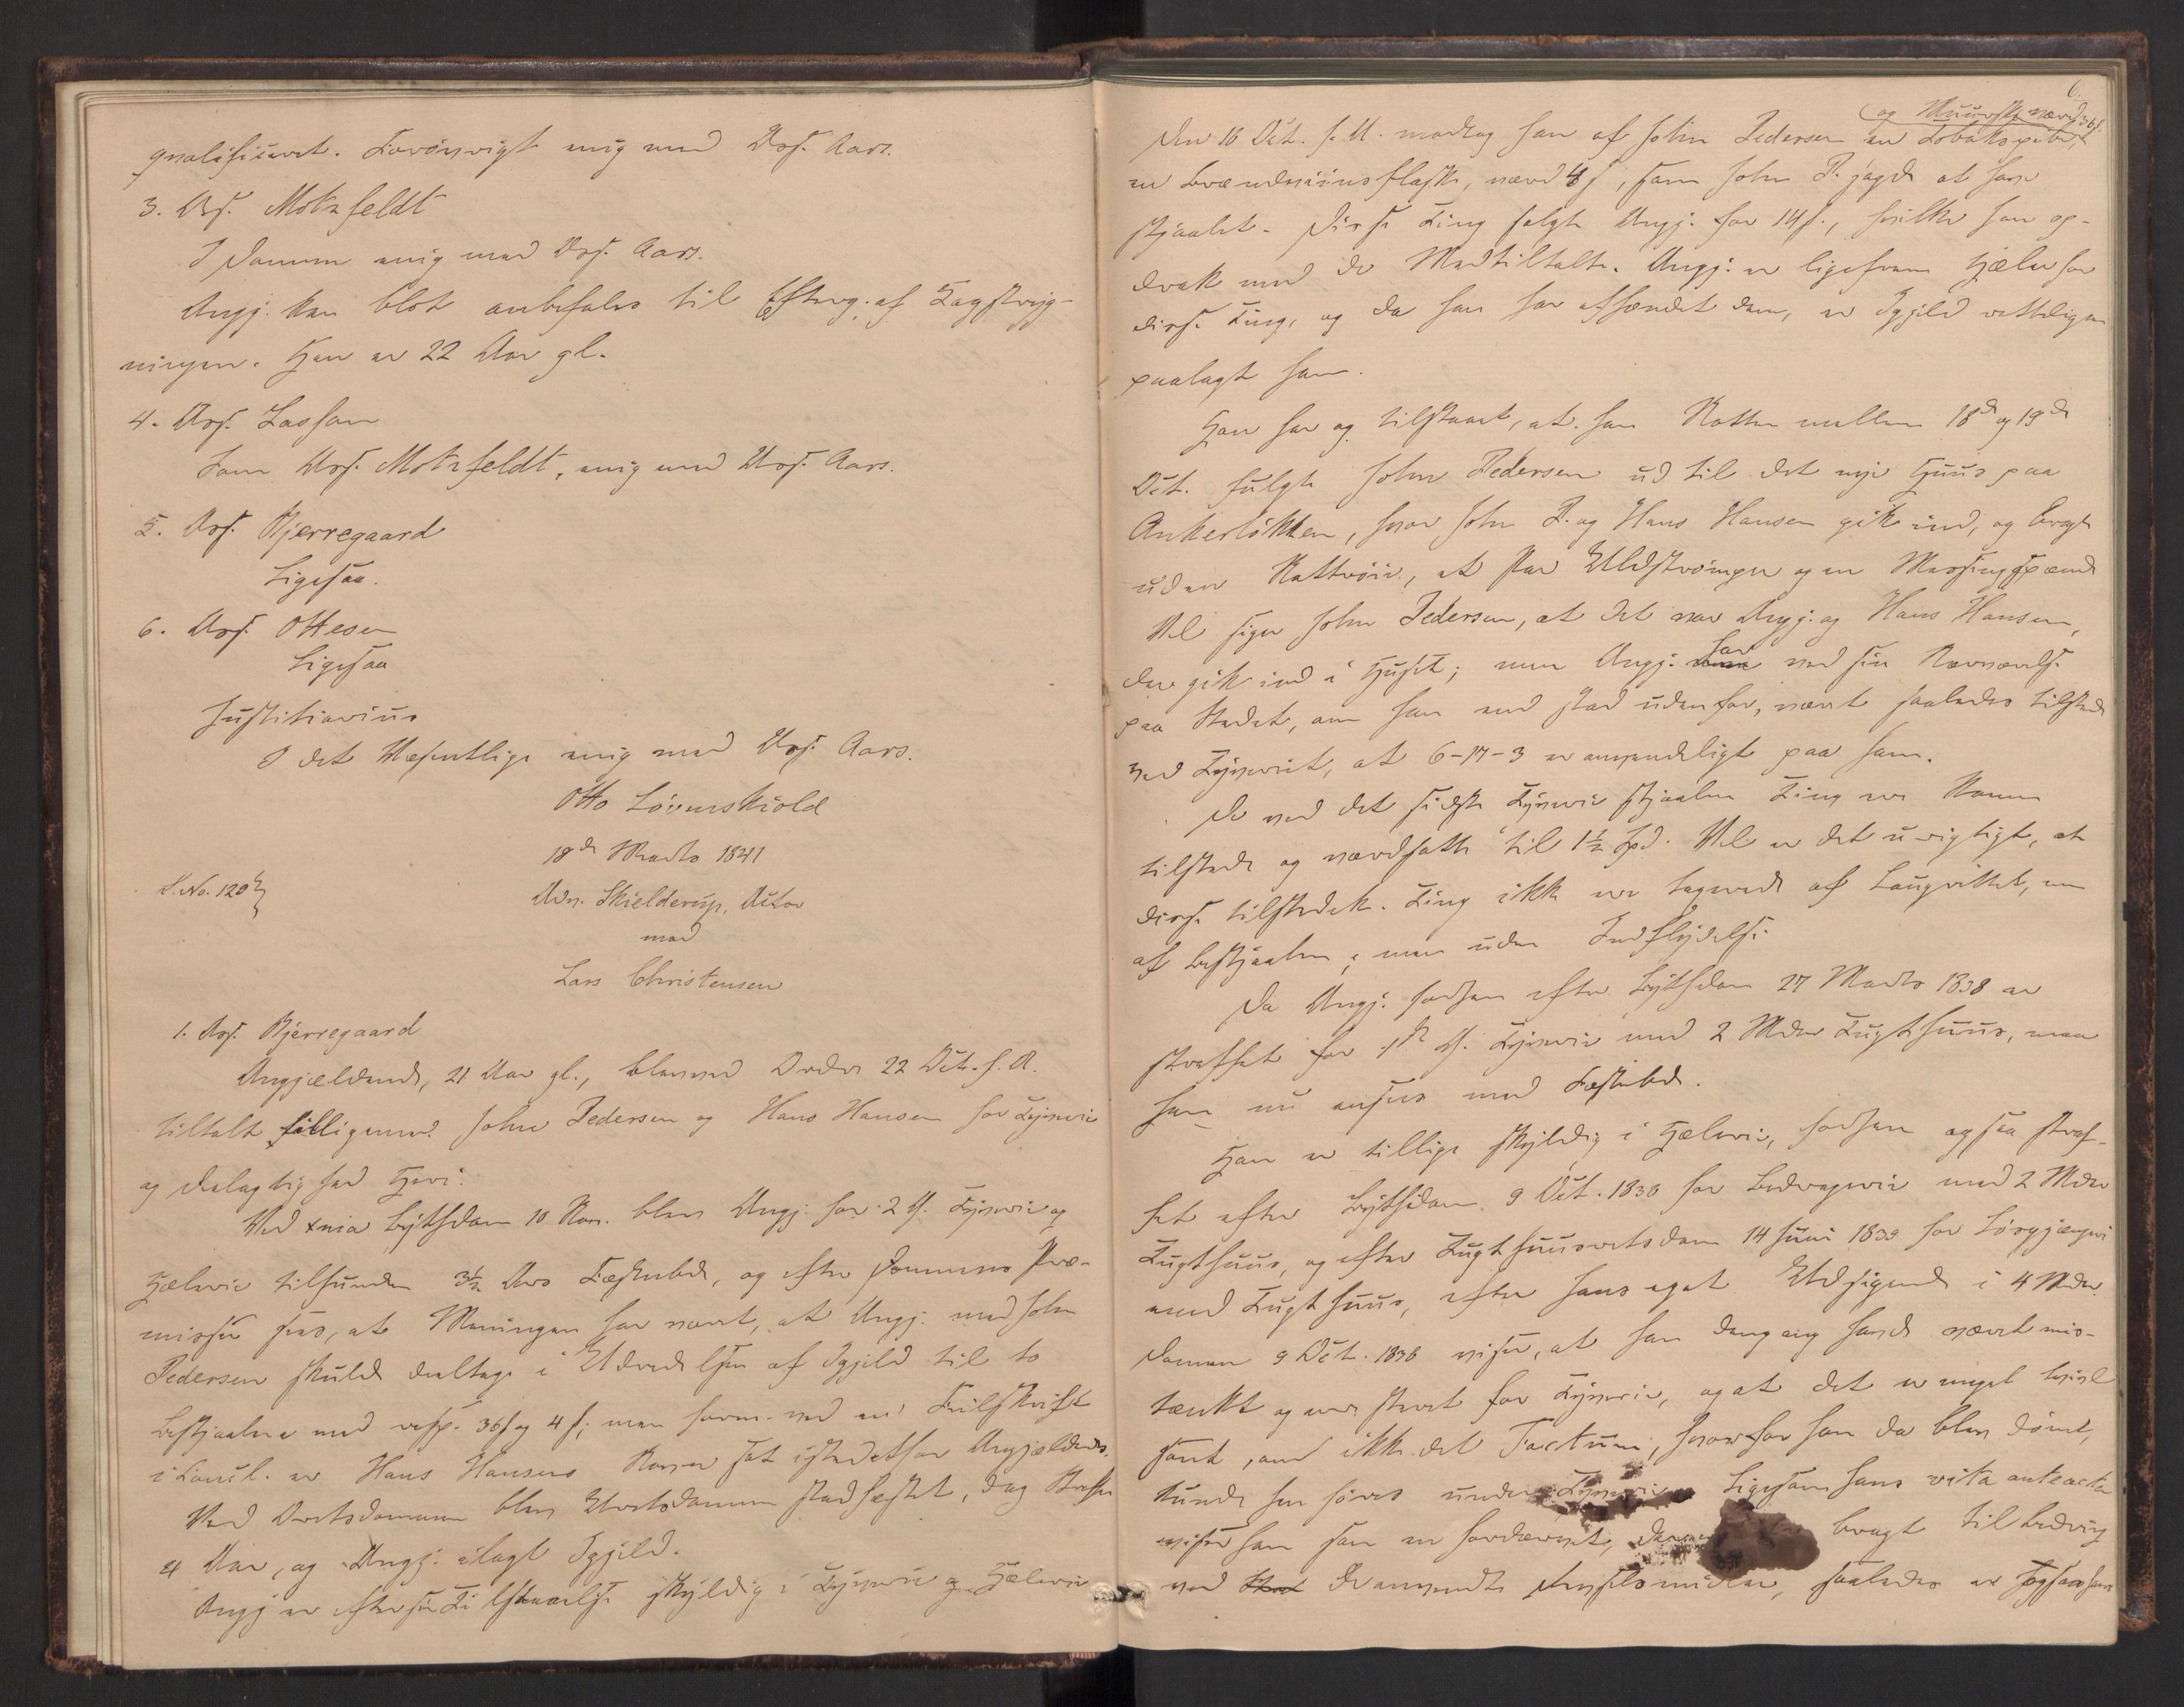 qvalificeret. Forøvrigt enig med Ass. Aars.
3. Ass. Motzfeldt
I Dommen enig med Ass. Aars.
Angj. kan blot anbefales til Efterg. af Kagstryg-
ningen. Han er 22 Aar gl.
4. Ass. Lasson
Som Ass. Motzfeldt, enig med Ass. Aars.
5. Ass. Bjerregaard
Ligesaa.
6. Ass. Ottesen
Ligesaa
Justitiarius
I det Væsentlige enig med Ass. Aars.
Otto Løvenskiold
18de Marts 1841
L. No. 120
Adv. Skielderup, Actor
mod
Lars Christensen
1. Ass. Bjerregaard
Angjældende, 21 Aar gl., blev ved Ordre 22 Oct. f. A.
tiltalt tilligemed John Pedersen og Hans Hansen for Tyverie
og Delagtighed heri.
Ved Xnia Bythsdom 10 Nov. blev Angj. for 2 G. Tyverie og
Hælerie tilfunden 3½ Aars Fæstnbd., og efter Dommens Præ-
misser sees, at Meningen har været, at Angj. med John
Pedersen skulde deeltage i Udredelsen af Igjeld til to
Bestjaalne med resp. 36 s og 4 s; men form. ved en Feilskrift
i Concl. er Hans Hansens Navn sat istedetfor Angjældendes.
Ved Overetsdommen blev Underetsdommen stadfæstet, dog Straffen
4 Aar, og Angj. ilagt Igjeld.
Angj er efter sin Tilstaaelse skyldig i Tyverie og Hælerie
6.
Den 16 Oct. f. A. modtog han af John Pedersen en Tobakspibe, og
en Brændeviinsflaske, værd 4 s, som John P. sagde at have
stjaalet. Disse Ting solgte Angj. for 14 s., hvilke han op-
drak med de Medtiltalte. Angj. er ligefrem Hæler for
disse Ting, og da han har afhændet dem, er Igjeld rettelig
paalagt ham.
Han har og tilstaaet, at han Natten mellem 18de og 19de
Oct. fulgte John Pedersen ud til det nye Huus paa
Ankerløkken, hvor John P. og Hans Hansen gik ind, og bragte
ud en Nattrøie, et Par Uldstrømper og en Messingspænde
Vel siger John Pedersen, at det var Angj. og Hans Hansen,
der gik ind i Huset; men Angj. har ved sin Nærværelse
paa Stedet, om han end stod udenfor, været saaledes tilstede
ved Tyveriet, at 6-17-3 er anvendeligt paa ham.
De ved det sidste Tyverie stjaalne Ting ere komne
tilstede og værdsatte til 1½ Spd. Vel er det urigtigt, at
disse tilstedek. Ting ikke ere taxerede af Laugrettet, men
af Bestjaalne, men uden Indflydelse
Da Angj. forhen efter Bythsdom 27 Marts 1838 er
straffet for 1ste G. Tyverie med 2 Mdrs Tugthuus, maa
han nu ansees med Fæstnbd.
Han er tillige skyldig i Hælerie, forhen ogsaa straf-
fet efter Bythsdom 9 Oct. 1838 for Bedragerie med 2 Mdrs
Tugthuus, og efter Tugthuusretsdom 14 Juni 1839 for Løsgjængeri
med Tugthuus, efter hans eget Udsigende i 4 Mdr.
Dommen 9 Oct. 1838 viser, at han dengang havde været mis-
tænkt og arresteret for Tyverie, og at det er meget tvivl
somt, om ikke det Factum, hvorfor han da blev dømt,
kunde henføres under Tyverie. Ligesom hans vita anteacta
viser ham som en fordærvet, bragt til Bedring
ved de anvendte Tvangsmidler, saaledes er